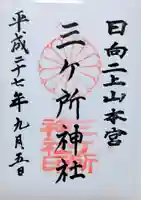 日向二上山本宮
三ヶ所神社
平成二十七年九月五日